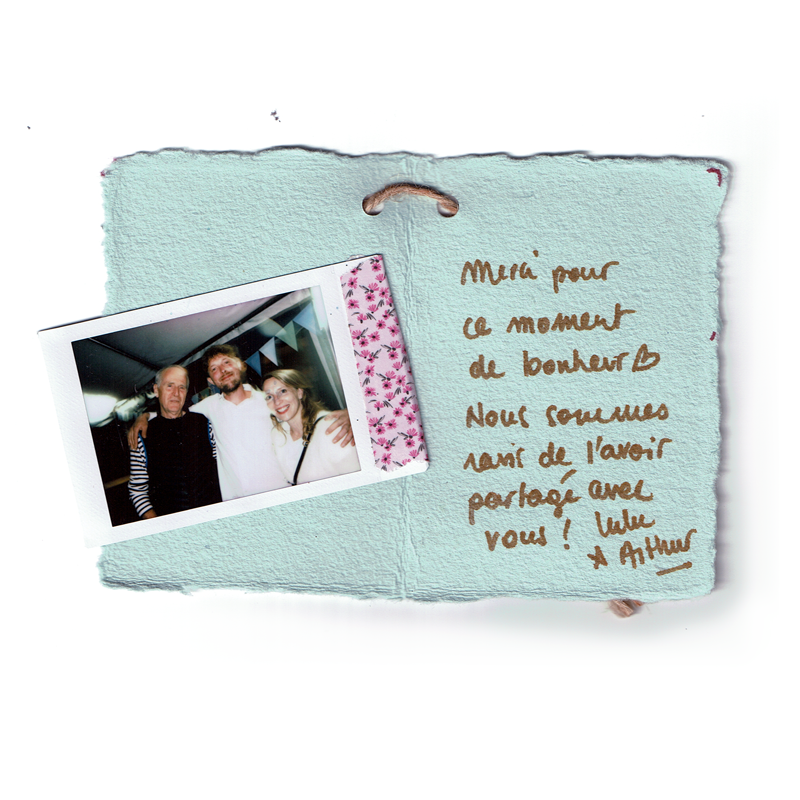 Merci pour
ce moment
de bonheur ♡
Nous sommes
ravis de l'avoir
partagé avec
vous ! Lulu
& Arthur